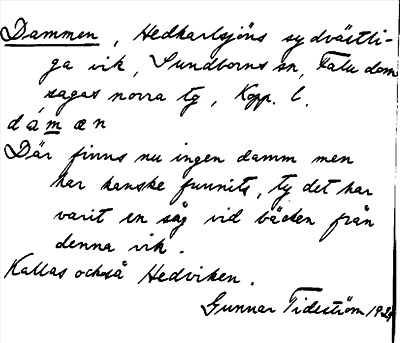 Dammen, Hedkarlsjöns sydvästli-
ga vik, Sundborns sn, Falu dom
sagas norra tg, Kopp. l.
dámæn
Där finns nu ingen damm men
har kanske funnits, ty det har
varit en såg vid bäcken från
denna vik.
Kallas också Hedviken.
Gunnar Tideström